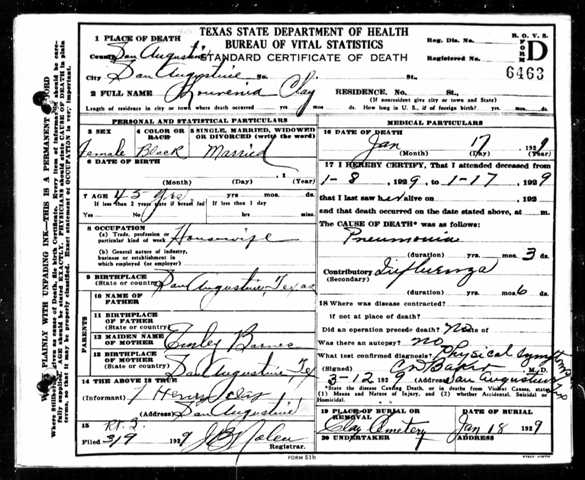 TEXAS STATE DEPARTMENT OF HEALTH
BUREAU OF VITAL STATISTICS
STANDARD CERTIFICATE OF DEATH
Reg. Dis. No.
Registered No.
B. O. V. S.
FORM D
6463
1 PLACE OF DEATH
County San Augustine
City San Augustine No. St.
2 FULL NAME Clay RESIDENCE. No. St.
(If nonresident give city or town and State)
Length of residence in city or town where death occurred yrs. mos. ds. How long in U. S., if of foreign birth? yrs. mos. ds.
PERSONAL AND STATISTICAL PARTICULARS
3 SEX Female
4 COLOR OR RACE Black
5 SINGLE, MARRIED, WIDOWED OR DIVORCED (write the word) Married
6 DATE OF BIRTH
(Month) (Day) (Year)
7 AGE 45 yrs. mos. ds.
If less than 2 years state if breast fed If less than 1 day
Yes No hrs. min.
8 OCCUPATION
(a) Trade, profession or particular kind of work Housewife
(b) General nature of industry, business or establishment in which employed (or employer)
9 BIRTHPLACE
(State or country) San Augustine, Texas
PARENTS
10 NAME OF FATHER
11 BIRTHPLACE OF FATHER
(State or country)
12 MAIDEN NAME OF MOTHER Barnes
13 BIRTHPLACE OF MOTHER
(State or country) San Augustine Tex
14 THE ABOVE IS TRUE
(Informant) Henry Clay
(Address) San Augustine
15 Rt. 3
Filed 3/9 1929 Nolen
Registrar.
MEDICAL PARTICULARS
16 DATE OF DEATH
Jan 17 1929
(Month) (Day) (Year)
17 I HEREBY CERTIFY, That I attended deceased from
1-8, 1929, to 1-17, 1929
that I last saw her alive on 192
and that death occurred on the date stated above, at m.
The CAUSE OF DEATH* was as follows:
Pneumonia
(duration) yrs. mos. 3 ds.
Contributory Influenza
(Secondary)
(duration) yrs. mos. 6 ds.
18 Where was disease contracted?
if not at place of death?
Did an operation precede death? No Date of
Was there an autopsy? no
What test confirmed diagnosis? Physical symptoms
(Signed) Baker M. D.
3-12 1929 (Address) San Augustine
* State the disease Causing Death, or in deaths from Violent Causes, state (1) Means and Nature of Injury, and (2) whether Accidental, Suicidal or Homicidal.
19 PLACE OF BURIAL OR REMOVAL Clay Cemetery
DATE OF BURIAL Jan 18 1929
20 UNDERTAKER ADDRESS
FORM 51b